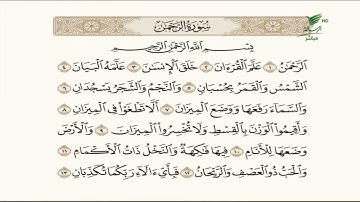 سُورَةُ الرَّحْمَٰن
HD
مباشر
بِسْمِ اللَّهِ الرَّحْمَٰنِ الرَّحِيمِ
الرَّحْمَٰنُ ١ عَلَّمَ الْقُرْءَانَ ٢ خَلَقَ الْإِنسَٰنَ ٣ عَلَّمَهُ الْبَيَانَ ٤
الشَّمْسُ وَالْقَمَرُ بِحُسْبَانٍ ٥ وَالنَّجْمُ وَالشَّجَرُ يَسْجُدَانِ ٦
وَالسَّمَاءَ رَفَعَهَا وَوَضَعَ الْمِيزَانَ ٧ أَلَّا تَطْغَوْا فِي الْمِيزَانِ ٨
وَأَقِيمُوا الْوَزْنَ بِالْقِسْطِ وَلَا تُخْسِرُوا الْمِيزَانَ ٩ وَالْأَرْضَ
وَضَعَهَا لِلْأَنَامِ ١٠ فِيهَا فَٰكِهَةٌ وَالنَّخْلُ ذَاتُ الْأَكْمَامِ ١١
وَالْحَبُّ ذُو الْعَصْفِ وَالرَّيْحَانُ ١٢ فَبِأَيِّ ءَالَاءِ رَبِّكُمَا تُكَذِّبَانِ ١٣